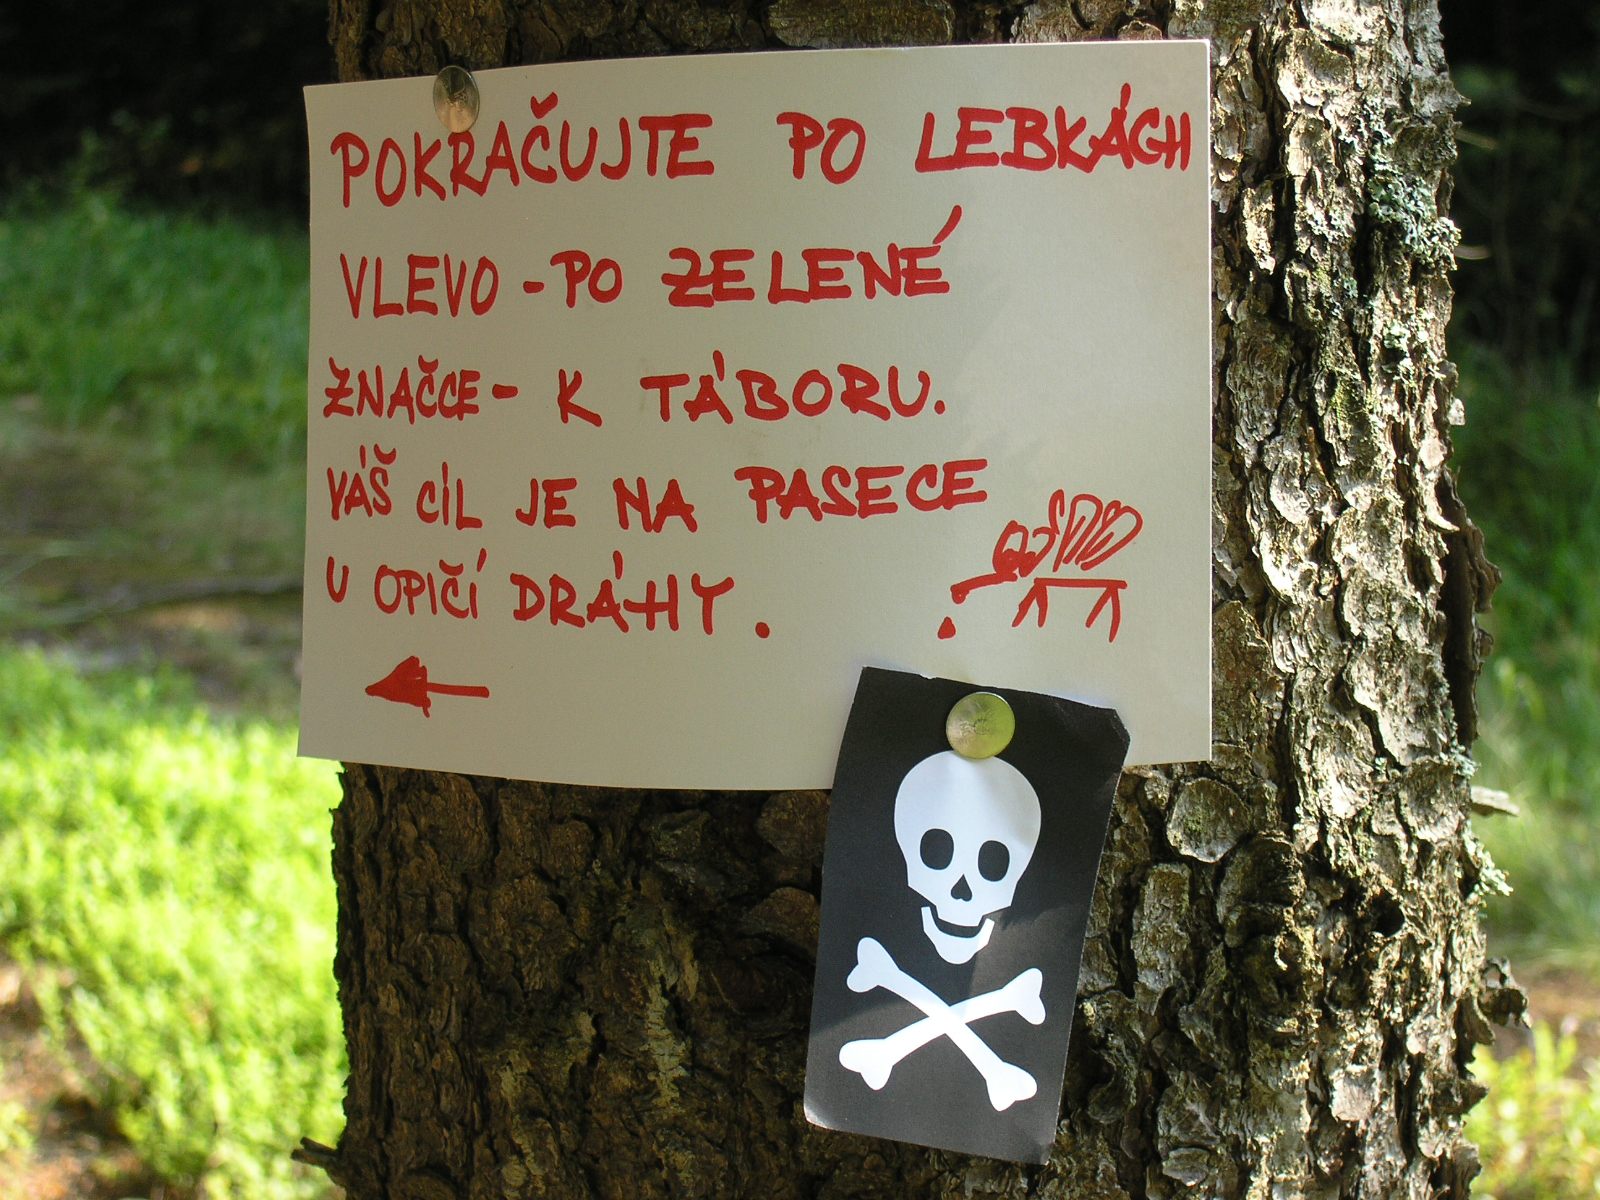 POKRAČUJTE PO LEBKÁCH
VLEVO - PO ZELENÉ
ZNAČCE - K TÁBORU.
VÁŠ CÍL JE NA PASECE
U OPIČÍ DRÁHY.